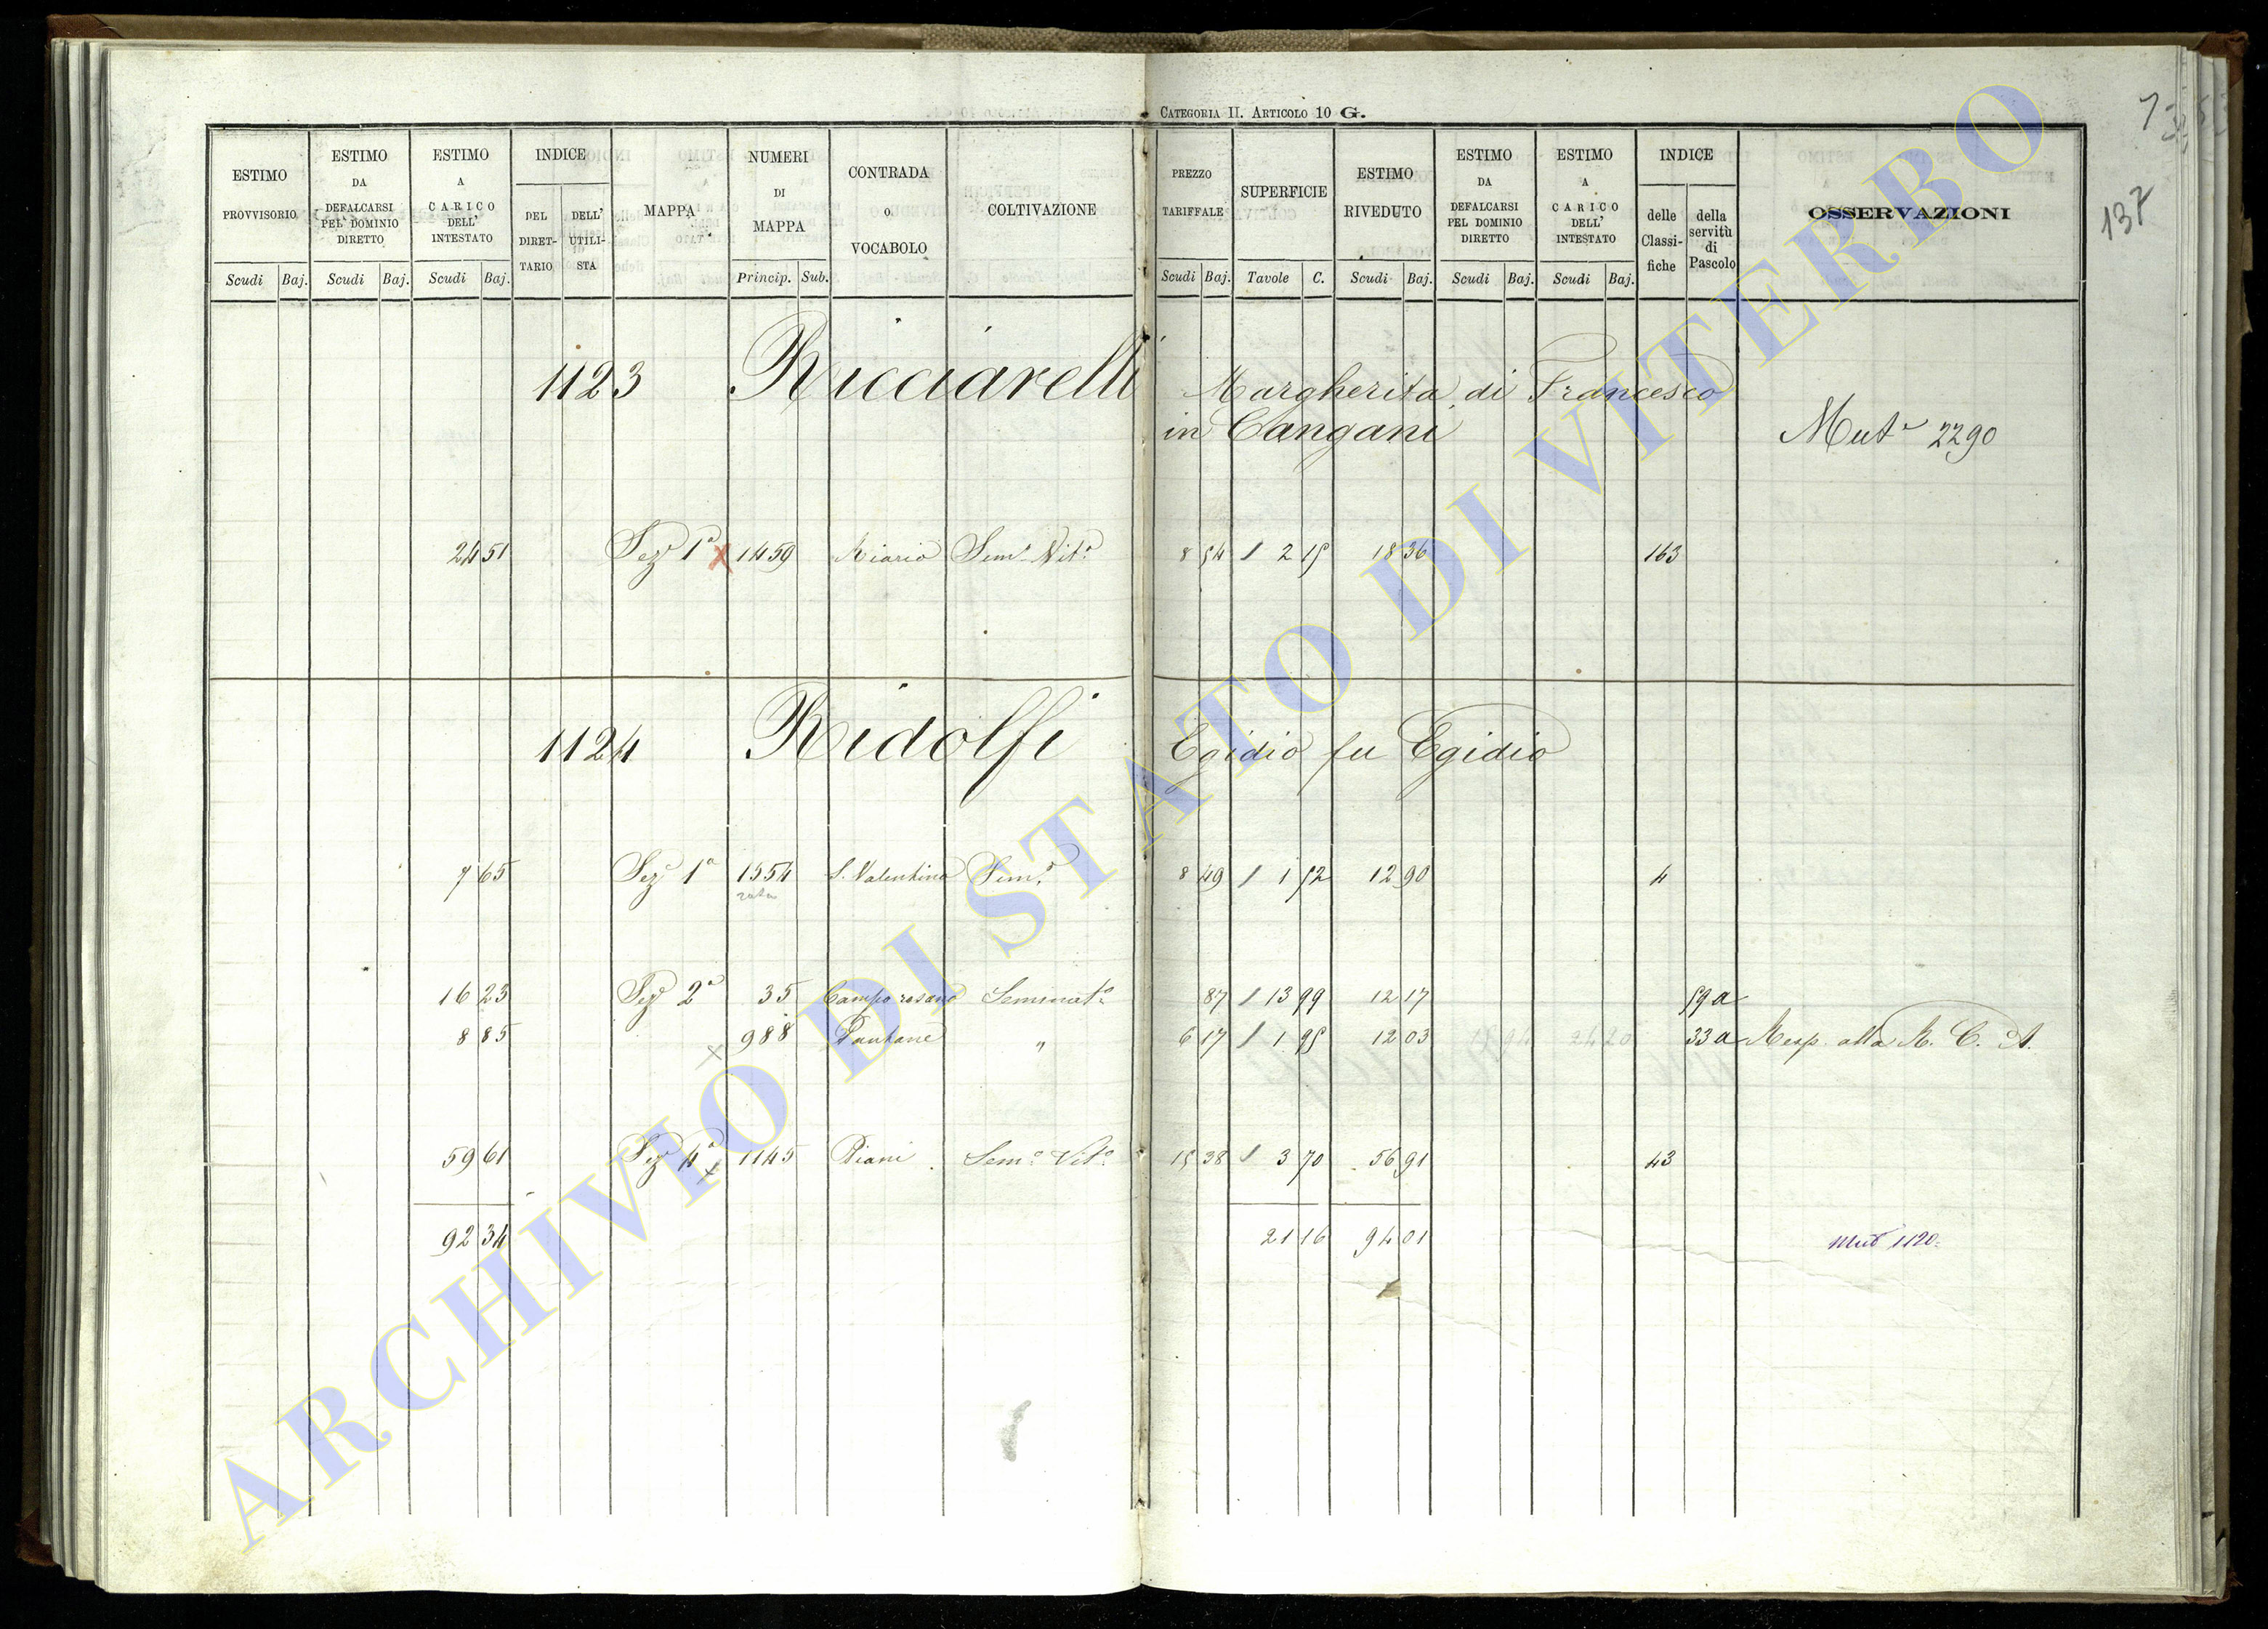 CATEGORIA II. ARTICOLO 10 G.
137
ESTIMO PROVVISORIO Scudi Baj.
ESTIMO DA DEFALCARSI PEL DOMINIO DIRETTO Scudi Baj.
ESTIMO A CARICO DELL' INTESTATO Scudi Baj.
INDICE DEL DIRETTARIO DELL' UTILISTA
MAPPA
NUMERI DI MAPPA Princip. Sub.
CONTRADA O VOCABOLO
COLTIVAZIONE
PREZZO TARIFFALE Scudi Baj.
SUPERFICIE Tavole C.
ESTIMO RIVEDUTO Scudi Baj.
ESTIMO DA DEFALCARSI PEL DOMINIO DIRETTO Scudi Baj.
ESTIMO A CARICO DELL' INTESTATO Scudi Baj.
INDICE delle Classifiche della servitù di Pascolo
OSSERVAZIONI
1123 Ricciarelli Margherita di Francesco
in Cangani
Mut. 2290
24 51 Sez. 1a X 1459 Riario Sem. Vit. 8 54 2 15 18 36 163
1124 Ridolfi Egidio fu Egidio
7 65 Sez. 1a 1554 S. Valentino Sem. 8 49 1 52 12 90 4
rata
16 23 Sez. 2a 35 Campo rosano Seminat. 87 13 99 12 17 59a
8 85 988 Pantane " 6 17 1 95 12 03 33a Resp. alla R. C. A.
59 61 Sez. 4a 1145 Piani Sem. Vit. 15 38 3 70 56 91 43
92 34 21 16 94 01 Mut 1120
ARCHIVIO DI STATO DI VITERBO